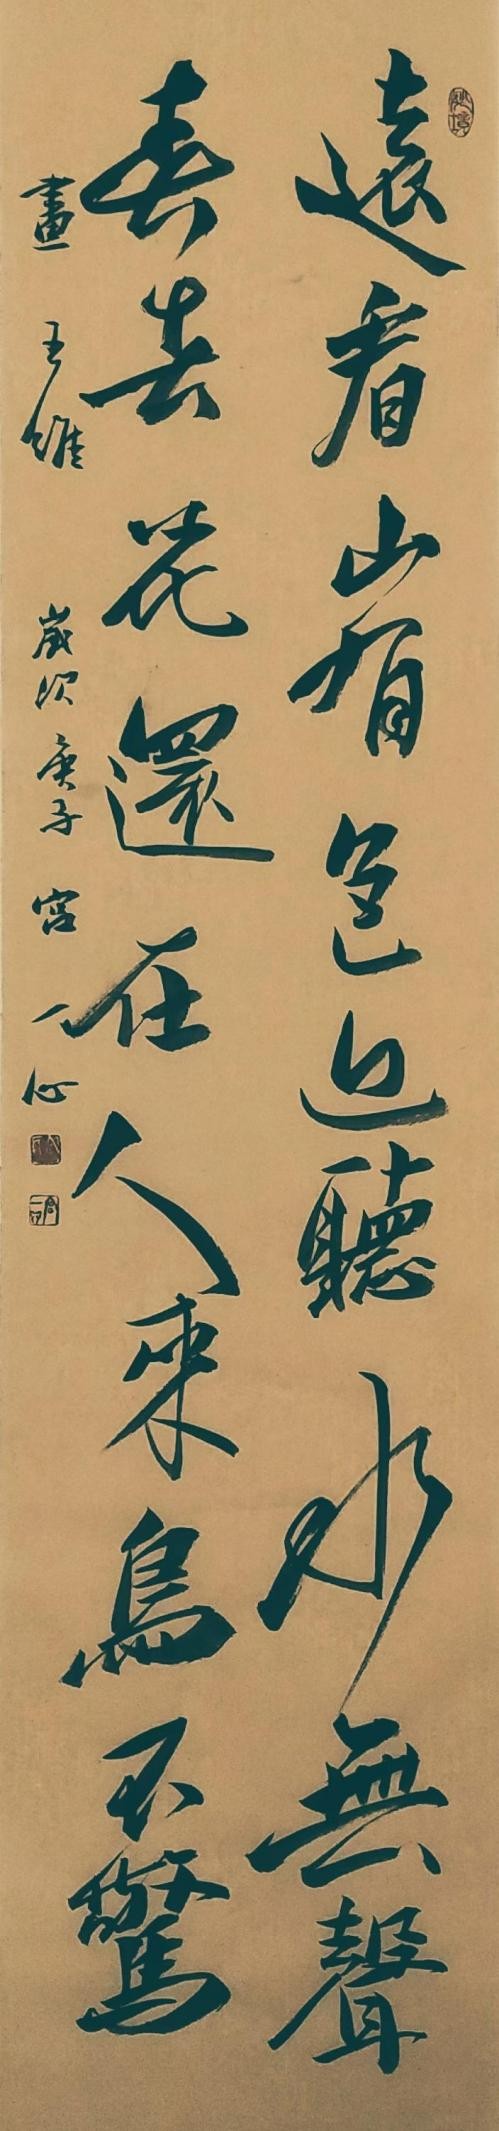 遠看山有色近聽水無聲
春去花還在人來鳥不驚
畫 王維 歲次庚子 宮一心